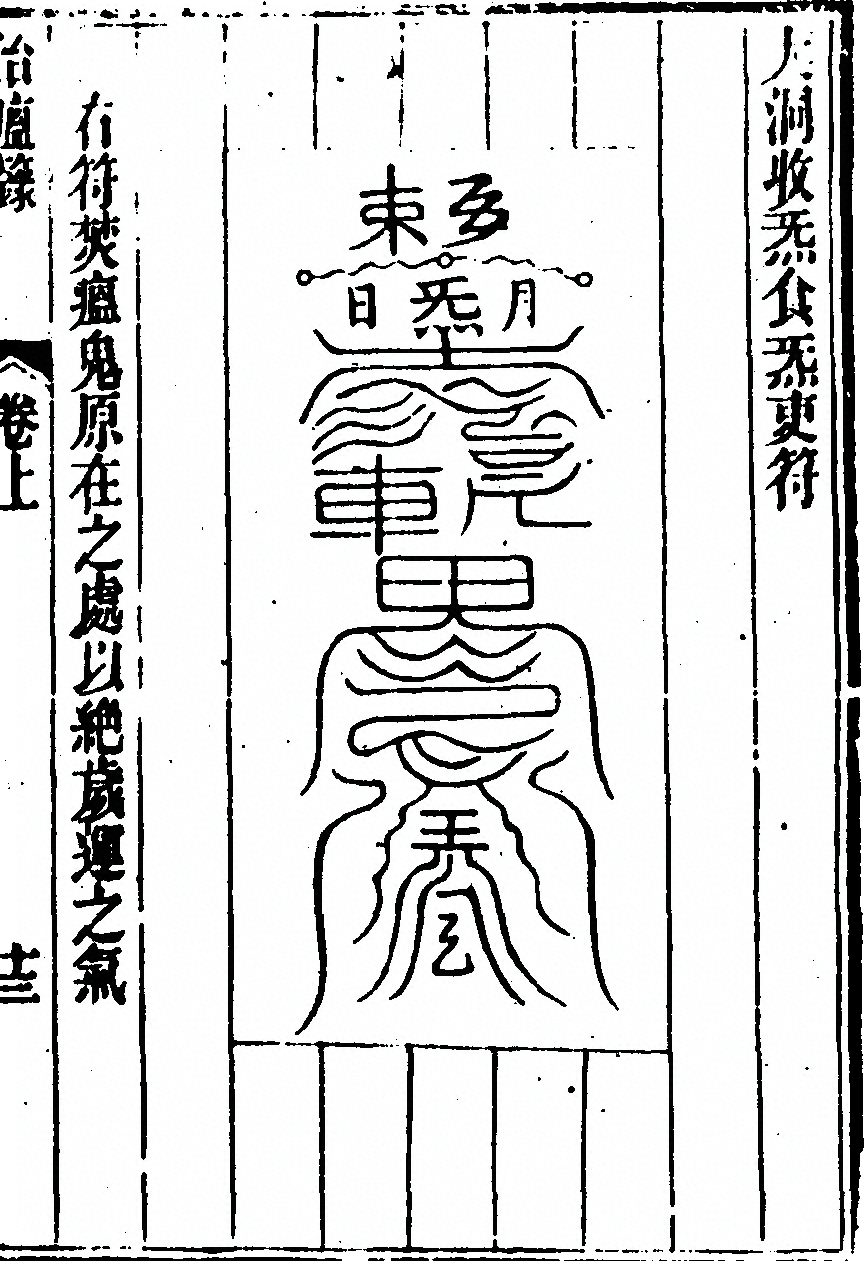 洞收炁食炁吏符
日炁月
車
右符焚瘟鬼原在之處以絕歲運之氣
治瘟籙
卷上
十三